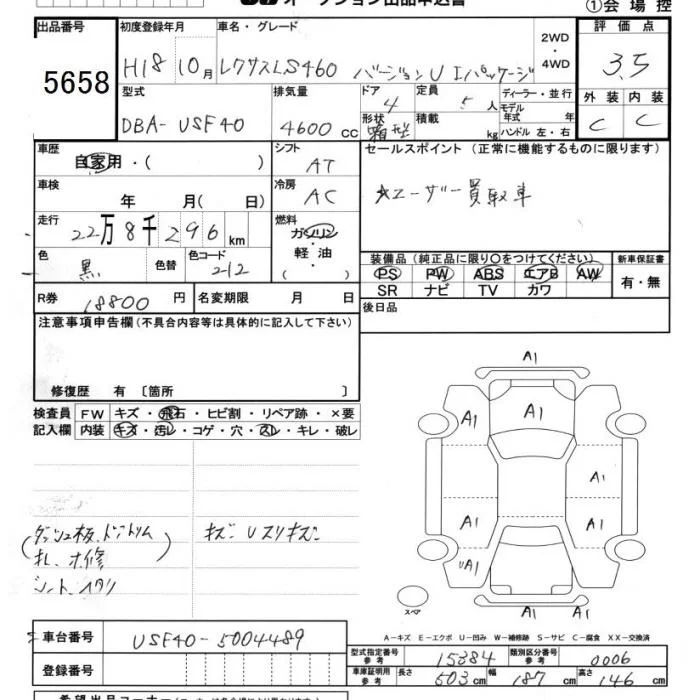 オークション出品申込書
①会場控
出品番号 初度登録年月 車名・グレード 2WD・4WD 評価点
5658 H18 10月 レクサスLS460 バージョンU Iパッケージ 3.5
型式 排気量 ドア 4 定員 5人 ディーラー・並行 外装 内装
モデル年式 年
DBA-USF40 4600cc 形状 箱型 積載 kg ハンドル 左・右 C C
車歴 シフト セールスポイント (正常に機能するものに限ります)
自家用・( ) AT
車検 冷房 ★ユーザー買取車
年 月( 日) AC
走行 燃料
22万8千296km ガソリン
軽油
( )
色 黒 色替 色コード 212
装備品 (純正品に限り○をつけてください) 新車保証書
PS PW ABS エアB AW 有・無
SR ナビ TV カワ
R券 18800円 名変期限 月 日 後日品
注意事項申告欄 (不具合内容等は具体的に記入して下さい)
修復歴 有 〔箇所 〕
検査員 FW キズ・飛石・ヒビ割・リペア跡・×要
記入欄 内装 キズ・汚レ・コゲ・穴・スレ・キレ・破レ
A1
A1
A1 A1
A1
A1 A1
UA1
A1 A1
スペア
ダッシュ板、ドアトリム キズ U スリキズ
シート
A-キズ E-エクボ U-凹み W-補修跡 S-サビ C-腐食 XX-交換済
車台番号 USF40-5004489
登録番号
型式指定番号 参考 15384 類別区分番号 参考 0006
車庫証明用 参考 長さ 503cm 幅 187cm 高さ 146cm